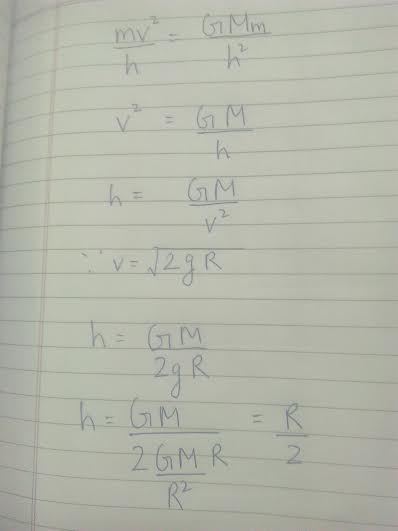 mv²/h = GMm/h²
v² = GM/h
h = GM/v²
∵ v = √2gR
h = GM/2gR
h = GM/(2 GM/R² R) = R/2